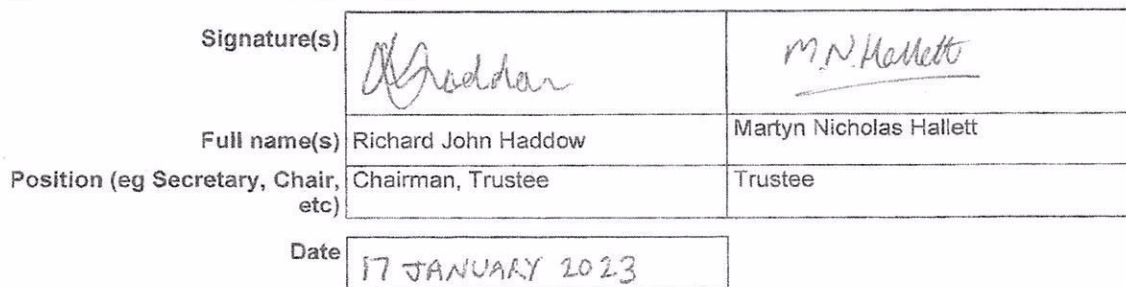 Signature(s)
M.N.Hallett
Full name(s) Richard John Haddow Martyn Nicholas Hallett
Position (eg Secretary, Chair, Chairman, Trustee Trustee
etc)
Date 17 JANUARY 2023